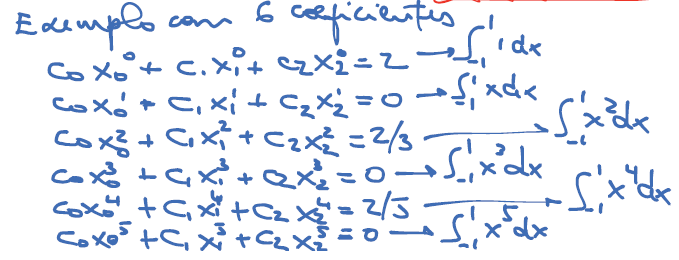 Exemplo com 6 coeficientes
c₀x₀⁰ + c₁x₁⁰ + c₂x₂⁰ = 2 → ∫₋₁¹ 1 dx
c₀x₀¹ + c₁x₁¹ + c₂x₂¹ = 0 → ∫₋₁¹ x dx
c₀x₀² + c₁x₁² + c₂x₂² = 2/3 → ∫₋₁¹ x² dx
c₀x₀³ + c₁x₁³ + c₂x₂³ = 0 → ∫₋₁¹ x³ dx
c₀x₀⁴ + c₁x₁⁴ + c₂x₂⁴ = 2/5 → ∫₋₁¹ x⁴ dx
c₀x₀⁵ + c₁x₁⁵ + c₂x₂⁵ = 0 → ∫₋₁¹ x⁵ dx